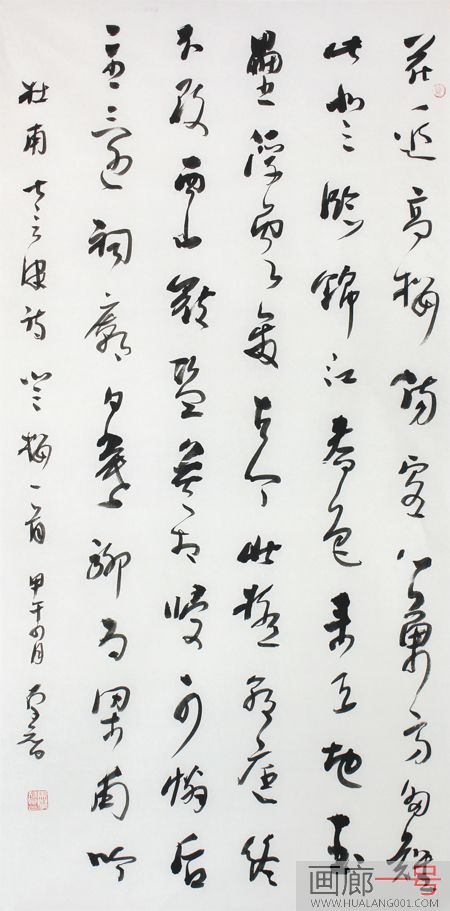 花近高楼傷客心萬方多難
此登临錦江春色来天地玉
壘浮雲變古今北極朝廷終
不改西山寇盜莫相侵可憐后
主還祠廟日暮聊为梁甫吟
杜甫七言律詩登楼一首 甲午四月
画廊一号
WWW.HUALANG001.COM